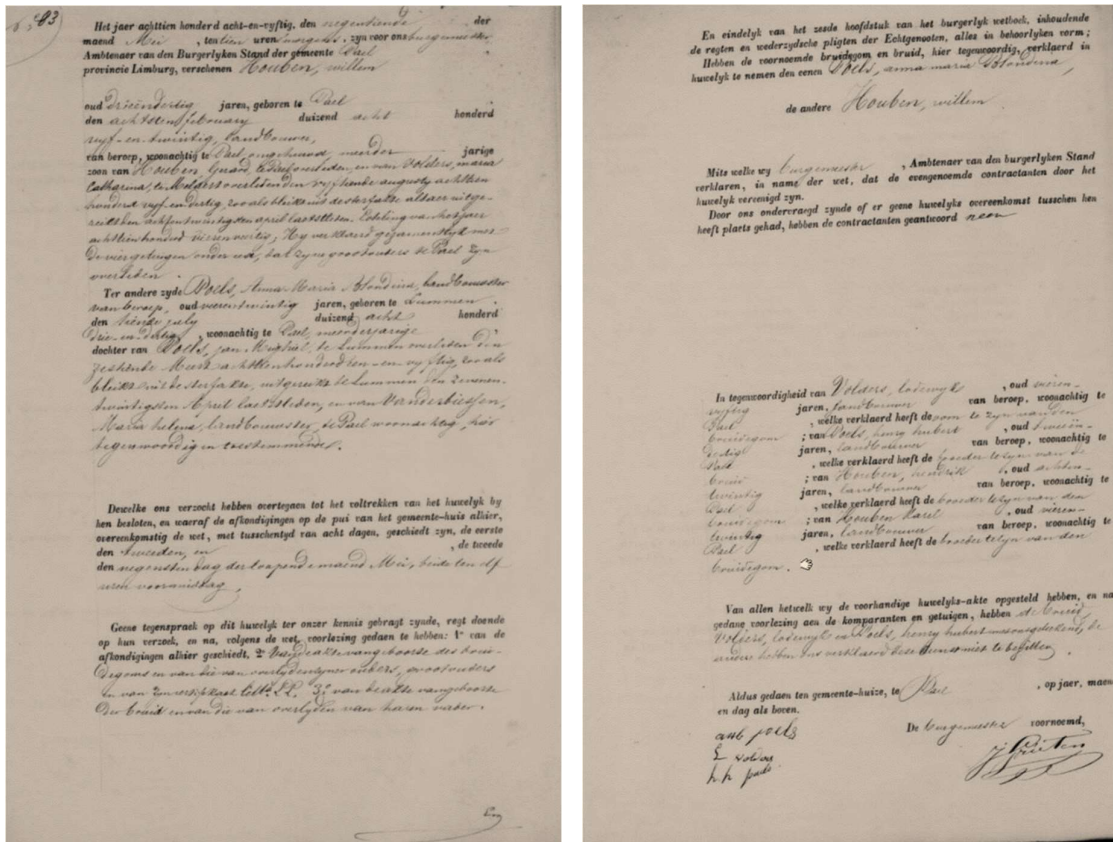 83
Het jaer achttien honderd acht-en-vyftig, den negentiende der
maend Mei , ten tien uren voorgods. zyn voor ons burgemeester
Ambtenaer van den Burgerlyken Stand der gemeente Pael
provincie Limburg, verschenen Houben, willem
oud drieendertig jaren, geboren te Pael
den achttien february duizend acht honderd
vyf-en-twintig, landbouwer,
van beroep, woonachtig te Pael, ongehuwd, meerder jarige
zoon van Houben, Gerard, te Pael overleden, en van Volders, maria
Catharina, te Meldert overleden den vyftiende augusty achttien
honderd vyf-en-dertig, zoo als blekt uit de sterfakte aldaer uitge-
reikt den achtentwintigsten april laetstleden. Loteling van het jaer
achttien honderd vierenveertig; Hy verklaerd gezamentlyk met
de vier getuigen onder eed, dat zyne grootouders te Pael zyn
overleden.
Ter andere zyde Poels, Anna Maria Blondina, landbouwster
van beroep, oud vierentwintig jaren, geboren te Lummen,
den tiende july duizend acht honderd
drie-en-dertig , woonachtig te Pael, meerderjarige
dochter van Poels, jan Michiel, te Lummen overleden den
zestiende Meert achttien honderd een-en-vyftig, zoo als
blekt uit de sterfakte, uitgereikt te Lummen den zeven en-
twintigsten April laetstleden, en van Vanderbiessen,
Maria helena, landbouwster, te Pael woonachtig, hier
tegenwoordig en toestemmende.
Dewelke ons verzocht hebben overtegaen tot het voltrekken van het huwelyk by
hen besloten, en waeraf de afkondigingen op de pui van het gemeente-huis alhier,
overeenkomstig de wet, met tusschentyd van acht dagen, geschiedt zyn, de eerste
den tweeden, en , de tweede
den negensten dag der loopende maend Mei, beide ten elf
uren voormiddag.
Geene tegenspraek op dit huwelyk ter onzer kennis gebragt zynde, regt doende
op hun verzoek, en na, volgens de wet, voorlezing gedaen te hebben: 1° van de
afkondigingen alhier geschiedt, 2° van de akte van geboorte des brui-
degoms en van die van overlyden zyner ouders, grootouders
en van zyn certifikaet Lett. L.L. 3° van de akte van geboorte
der bruid en van die van overlyden van haren vader.
En
En eindelyk van het zesde hoofdstuk van het burgerlyk wetboek, inhoudende
de regten en wederzydsche pligten der Echtgenoten, alles in behoorlyken vorm;
Hebben de voornoemde bruidegom en bruid, hier tegenwoordig, verklaerd in
huwelyk te nemen den eenen Poels, anna maria Blondina,
de andere Houben, willem.
Mits welke wy burgemeester , Ambtenaer van den burgerlyken Stand
verklaren, in name der wet, dat de evengenoemde contractanten door het
huwelyk vereenigd zyn.
Door ons ondervraegd zynde of er geene huwelyks overeenkomst tusschen hen
heeft plaets gehad, hebben de contractanten geantwoord neen
In tegenwoordigheid van Volders, lodewyk , oud vieren-
vyftig jaren, landbouwer van beroep, woonachtig te
Pael , welke verklaerd heeft de oom te zyn van den
bruidegom ; van Poels, henry hubert , oud tweeën-
dertig jaren, landbouwer van beroep, woonachtig te
Pael , welke verklaerd heeft de broeder te zyn van de
bruid ; van Houben, hendrik , oud achten-
twintig jaren, landbouwer van beroep, woonachtig te
Pael , welke verklaerd heeft de broeder te zyn van den
bruidegom ; van Houben Karel , oud vieren-
twintig jaren, landbouwer van beroep, woonachtig te
Pael , welke verklaerd heeft de broeder te zyn van den
bruidegom.
Van allen hetwelk wy de voorhandige huwelyks-akte opgesteld hebben, en na
gedane voorlezing aen de komparanten en getuigen, hebben de bruid
Volders, lodewyk en Poels, henry hubert met ons geteekend, de
andere hebben ons verklaerd deze kunst niet te bezitten.
Aldus gedaen ten gemeente-huize, te Pael , op jaer, maen
en dag als boven.
De burgemeester voornoemd,
amb poels
L volders
h h poels